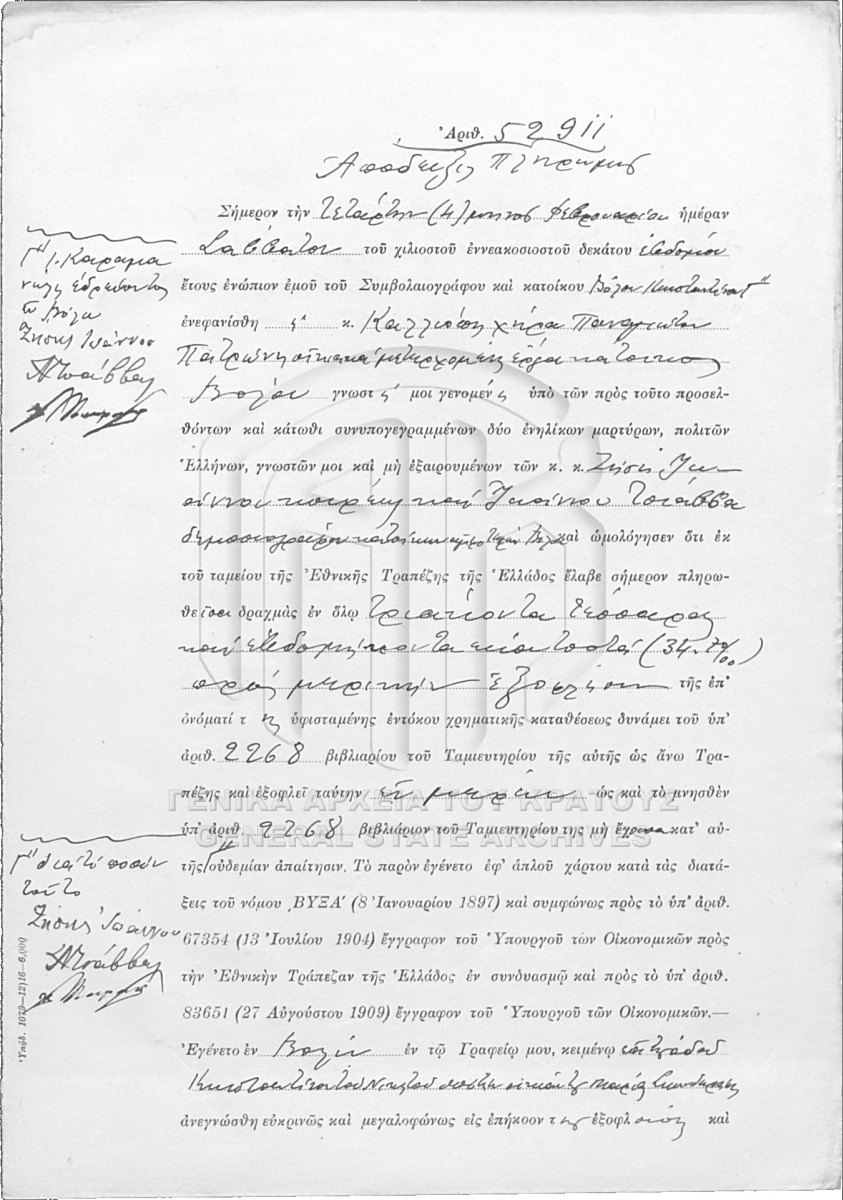 Ἀριθ. 52911
Ἀπόδειξις Πληρωμῆς
Σήμερον τὴν τετάρτην (4) μηνὸς Φεβρουαρίου ἡμέραν
Σάββατον τοῦ χιλιοστοῦ ἐννεακοσιοστοῦ δεκάτου ἑβδόμου
ἔτους ἐνώπιον ἐμοῦ τοῦ Συμβολαιογράφου καὶ κατοίκου Βόλου Κωνσταντίνου Γ
ἐνεφανίσθη ἡ κ. Καλλιόπη χήρα Παναγιώτου
μετερχομένη ἔργα κάτοικος
Βόλου γνωστή μοι γενομένη ὑπὸ τῶν πρὸς τοῦτο προσελ-
θόντων καὶ κάτωθι συνυπογεγραμμένων δύο ἐνηλίκων μαρτύρων, πολιτῶν
Ἑλλήνων, γνωστῶν μοι καὶ μὴ ἐξαιρουμένων τῶν κ. κ. Ζήση Ἰω-
άννου κουρέως καὶ Ἰωάννου Τσάββα
καὶ ὡμολόγησεν ὅτι ἐκ
τοῦ ταμείου τῆς Ἐθνικῆς Τραπέζης τῆς Ἑλλάδος ἔλαβε σήμερον πληρω-
θεῖσα δραχμὰς ἐν ὅλῳ τριάκοντα τέσσαρας
καὶ ἑβδομήκοντα ἑκατοστά (34.70/00)
πρὸς μερικὴν ἐξόφλησιν τῆς ἐπ'
ὀνόματί της ὑφισταμένης ἐντόκου χρηματικῆς καταθέσεως δυνάμει τοῦ ὑπ'
ἀριθ. 2268 βιβλιαρίου τοῦ Ταμιευτηρίου τῆς αὐτῆς ὡς ἄνω Τρα-
πέζης καὶ ἐξοφλεῖ ταύτην ἐν μέρει ὡς καὶ τὸ μνησθὲν
ὑπ' ἀριθ 2268 βιβλιάριον τοῦ Ταμιευτηρίου της μὴ ἔχουσα κατ' αὐ-
τῆς οὐδεμίαν ἀπαίτησιν. Τὸ παρὸν ἐγένετο ἐφ' ἁπλοῦ χάρτου κατὰ τὰς διατά-
ξεις τοῦ νόμου ͵ΒΥΞΑ' (8 Ἰανουαρίου 1897) καὶ συμφώνως πρὸς τὸ ὑπ' ἀριθ.
67354 (13 Ἰουλίου 1904) ἔγγραφον τοῦ Ὑπουργοῦ τῶν Οἰκονομικῶν πρὸς
τὴν Ἐθνικὴν Τράπεζαν τῆς Ἑλλάδος ἐν συνδυασμῷ καὶ πρὸς τὸ ὑπ' ἀριθ.
83651 (27 Αὐγούστου 1909) ἔγγραφον τοῦ Ὑπουργοῦ τῶν Οἰκονομικῶν.—
Ἐγένετο ἐν Βόλῳ ἐν τῷ Γραφείῳ μου, κειμένῳ
Κωνσταντίνου
ἀνεγνώσθη εὐκρινῶς καὶ μεγαλοφώνως εἰς ἐπήκοον τῆς ἐξοφλούσης καὶ
Γ. Καραμα
νώλη ἑδρεύοντος
Βόλῳ
Ζήσης Ἰωάννου
ΑΤσάββας
Γ διὰ τὸ ποσὸν
τοῦτο
Ζήσης Ἰωάννου
ΑΤσάββας
Ὑπόδ. 1079—12)16—6,000
ΓΕΝΙΚΑ ΑΡΧΕΙΑ ΤΟΥ ΚΡΑΤΟΥΣ
GENERAL STATE ARCHIVES